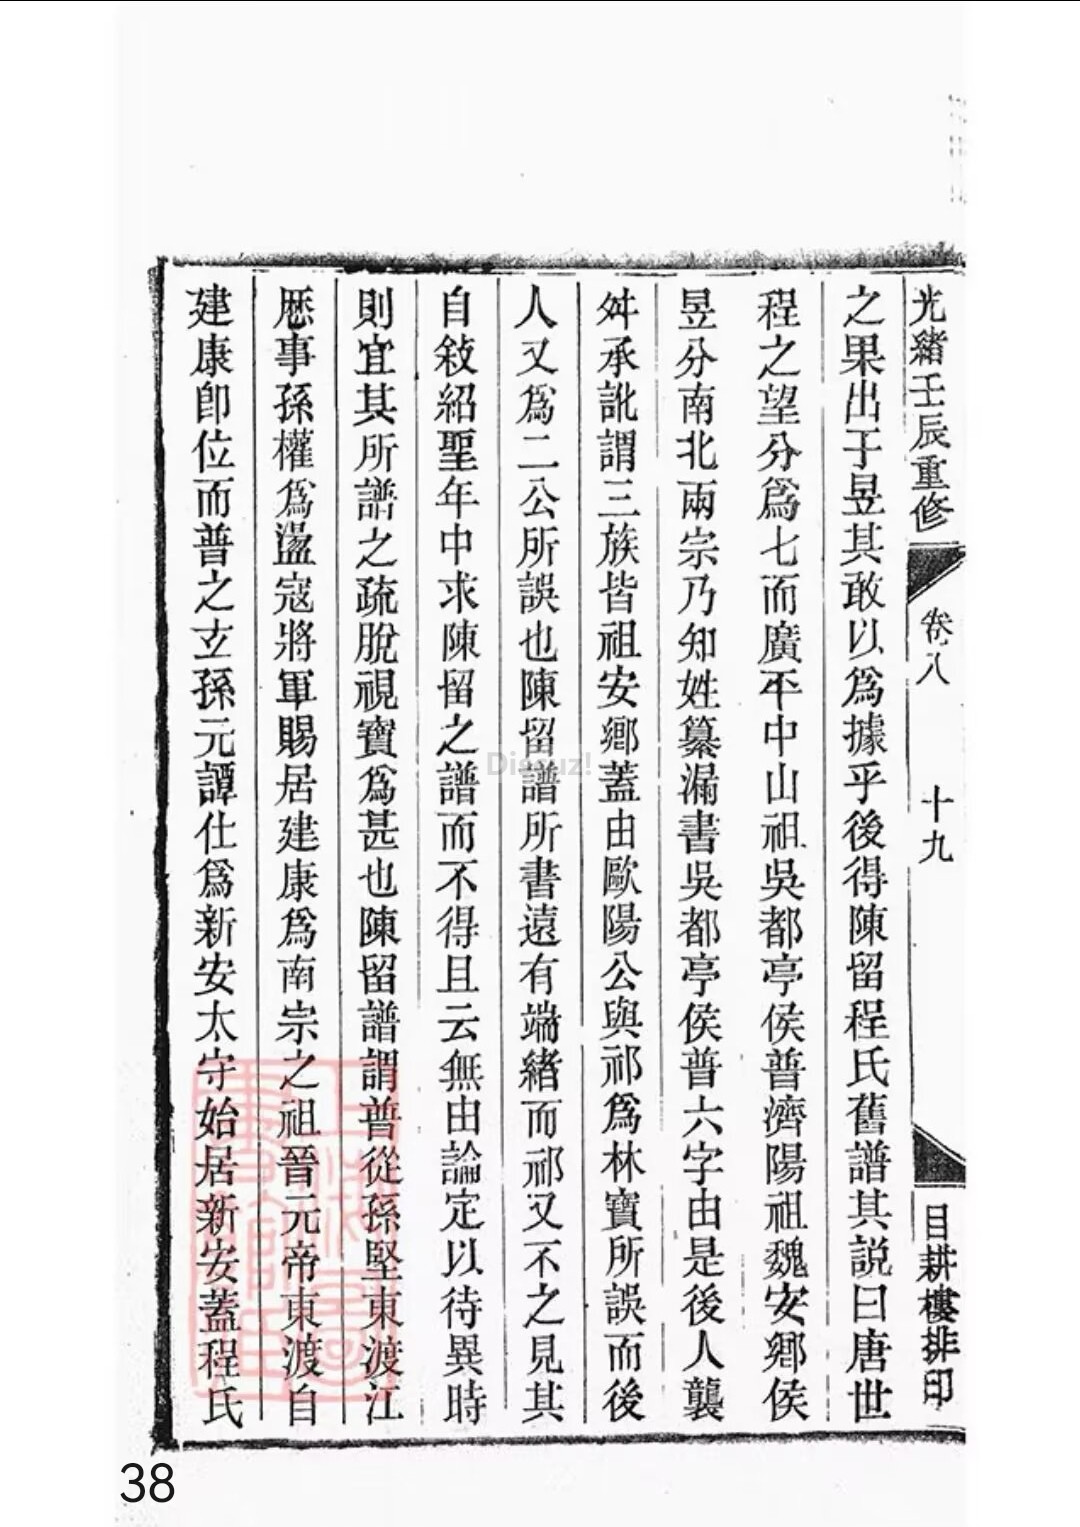 光緒壬辰重修
卷八
十九
目耕樓排印
之果出于昱其敢以爲據乎後得陳留程氏舊譜其説曰唐世
程之望分爲七而廣平中山祖吳都亭侯普濟陽祖魏安鄉侯
昱分南北兩宗乃知姓纂漏書吳都亭侯普六字由是後人襲
舛承訛謂三族皆祖安鄉蓋由歐陽公與祁爲林寶所誤而後
人又爲二公所誤也陳留譜所書遠有端緒而祁又不之見其
自敍紹聖年中求陳留之譜而不得且云無由論定以待異時
則宜其所譜之疏脫視寶爲甚也陳留譜謂普從孫堅東渡江
歷事孫權爲盪寇將軍賜居建康爲南宗之祖晉元帝東渡自
建康卽位而普之玄孫元譚仕爲新安太守始居新安蓋程氏
Discuz!
38